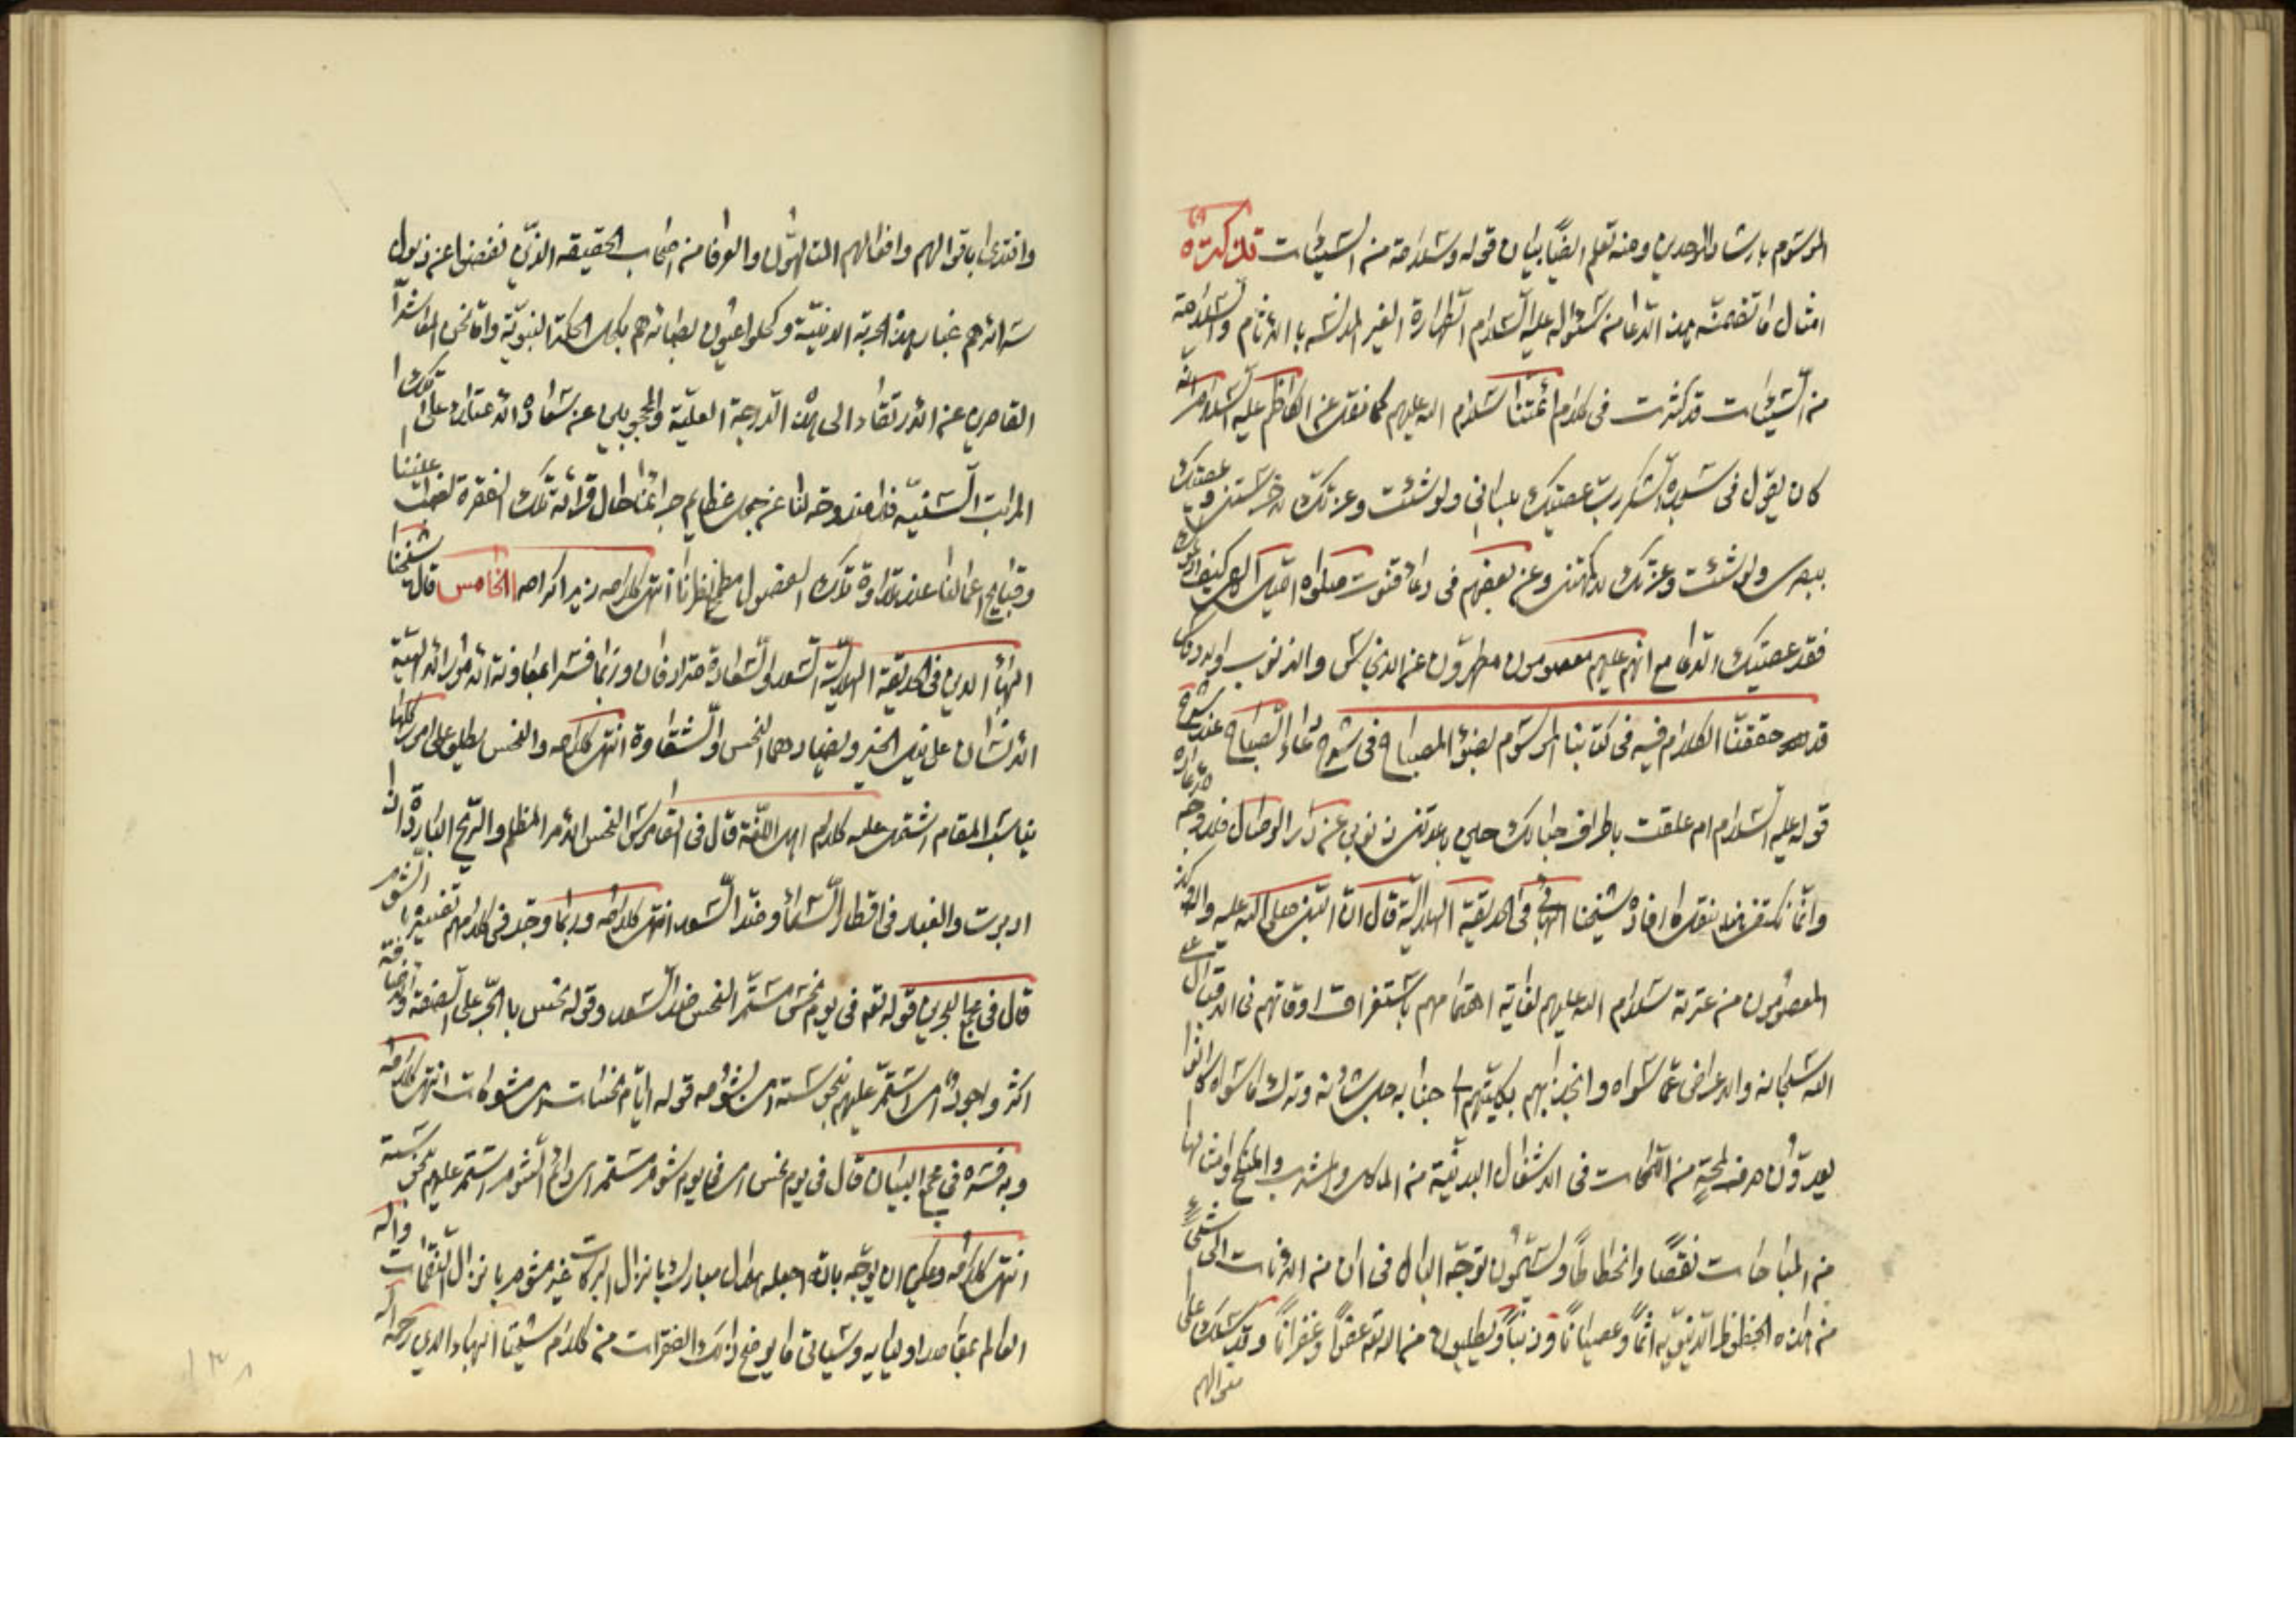 المرسوم بارشاد الموحدين ومنه تعلم ايضًا بيان قوله وسلامة من السيئات تذكرة
امثال ما تضمنه هذا الدعا من سئواله عليه السلام الطهارة الغير المدنسه بالاثام والسلامة
من السيئات قد كثرت في كلام ائمتنا سلام الله عليهم كما نقل عن الكاظم عليه السلام انه
كان يقول في سجدة الشكر رب عصيتك بلسانى ولو شئت وعزتك لاخرستنى وعصيتك
ببصرى ولو شئت وعزتك لاكمهتنى وعن بعضهم في دعاء قنوت صلواه الهى كيف ادعوك
فقد عصيتك الدعا مع انهم عليهم معصومون مطهرون عن الادناس والذنوب
قد حققنا الكلام فيه في كتابنا المرسوم بضوء المصباح في شرح دعاء الصباح عند شرح
قوله عليه السلام ام علقت باطراف حبالك حين باعدتنى ذنوبى عن دار الوصال
وانما نكتفى بنقل ما افاده شيخنا البهائى في الحديقة الهلالية قال ان النبى صلى الله عليه واله وكذا
المعصومون من عترته سلام الله عليهم لغاية اهتمامهم باستغراق اوقاتهم في الاقبال على
الله سبحانه والاعراض عما سواه وانجذابهم بكليتهم الى جنابه جل شأنه وترك ما سواه كانوا
يعدون صرف لمحة من اللمحات في الاشغال البدنية من الماكل والمشرب والمنكح وامثالها
من المباحات نقصًا وانحطاطًا ويسمون توجه البال في ان من الانات الى شئ
من هذه الحظوظ الدنيويه اثمًا وعصيانًا وذنبًا ويطلبون من الله تع عفوًا وغفرانًا وقد سلك على
منوالهم
واقتدى باقوالهم وافعالهم المتالهون والعرفا من اصحاب الحقيقه الذين نفضوا عن ذيول
سرائرهم غبار هذه الخربة الدنية وكحلوا عيون بصائرهم بكحل الحكمة النبوية واما نحن المعاشر
القاصرين عن الارتقاء الى هذه الدرجة العلية والمحجوبين عن سعادة الاعتلاء على تلك
المراتب السنيه فلا مندوحة لنا عن جعل عظايم جرائمنا حال قرائة تلك الفقرة نصب اعيننا
وقبايح اعمالنا عند تلاوة تلك الفصول مطمح انظارنا انتهى كلامه زيد اكرامه الخامس قال شيخنا
البهاء الدين في الحديقة الهلالية السعد والسعادة مترادفان وربما فسرا بمعاونة الامور الالهية
الانسان على نيل الخير ويضادهما النحس والشقاوة انتهى كلامه والنحس يطلق على امور كلها
يناسب المقام اشتمل عليه كلام اهل اللغة قال في القاموس النحس الامر المظلم والريح الباردة اذا
ادبرت والغبار في اقطار السماء وضد السعد انتهى كلامه وربما وجد في كلامهم تفسيره بالشوم
قال في مجمع البحرين قوله تعم في يوم نحس مستمر النحس ضد السعد وقوله نحس بالجر على الصفة والاضافة
اكثر واجود اى استمر عليهم بنحوسته اى بشؤمه قوله ايام نحسات اى مشومات انتهى كلامه
وبه فسره في مجمع البيان قال في يوم نحس اى في يوم شوم مستمر اى دائم الشوم استمر عليهم بنحوسته
انتهى كلامه ويمكن ان يوجه بانه اجعله هلال مبارك بانزال البركات غير مشوم بانزال النقمات والله
العالم بمقاصد اوليايه وسياتى ما يوضح ذلك الفقرات من كلام شيخنا البهاء الدين رحمه الله
١٣٨